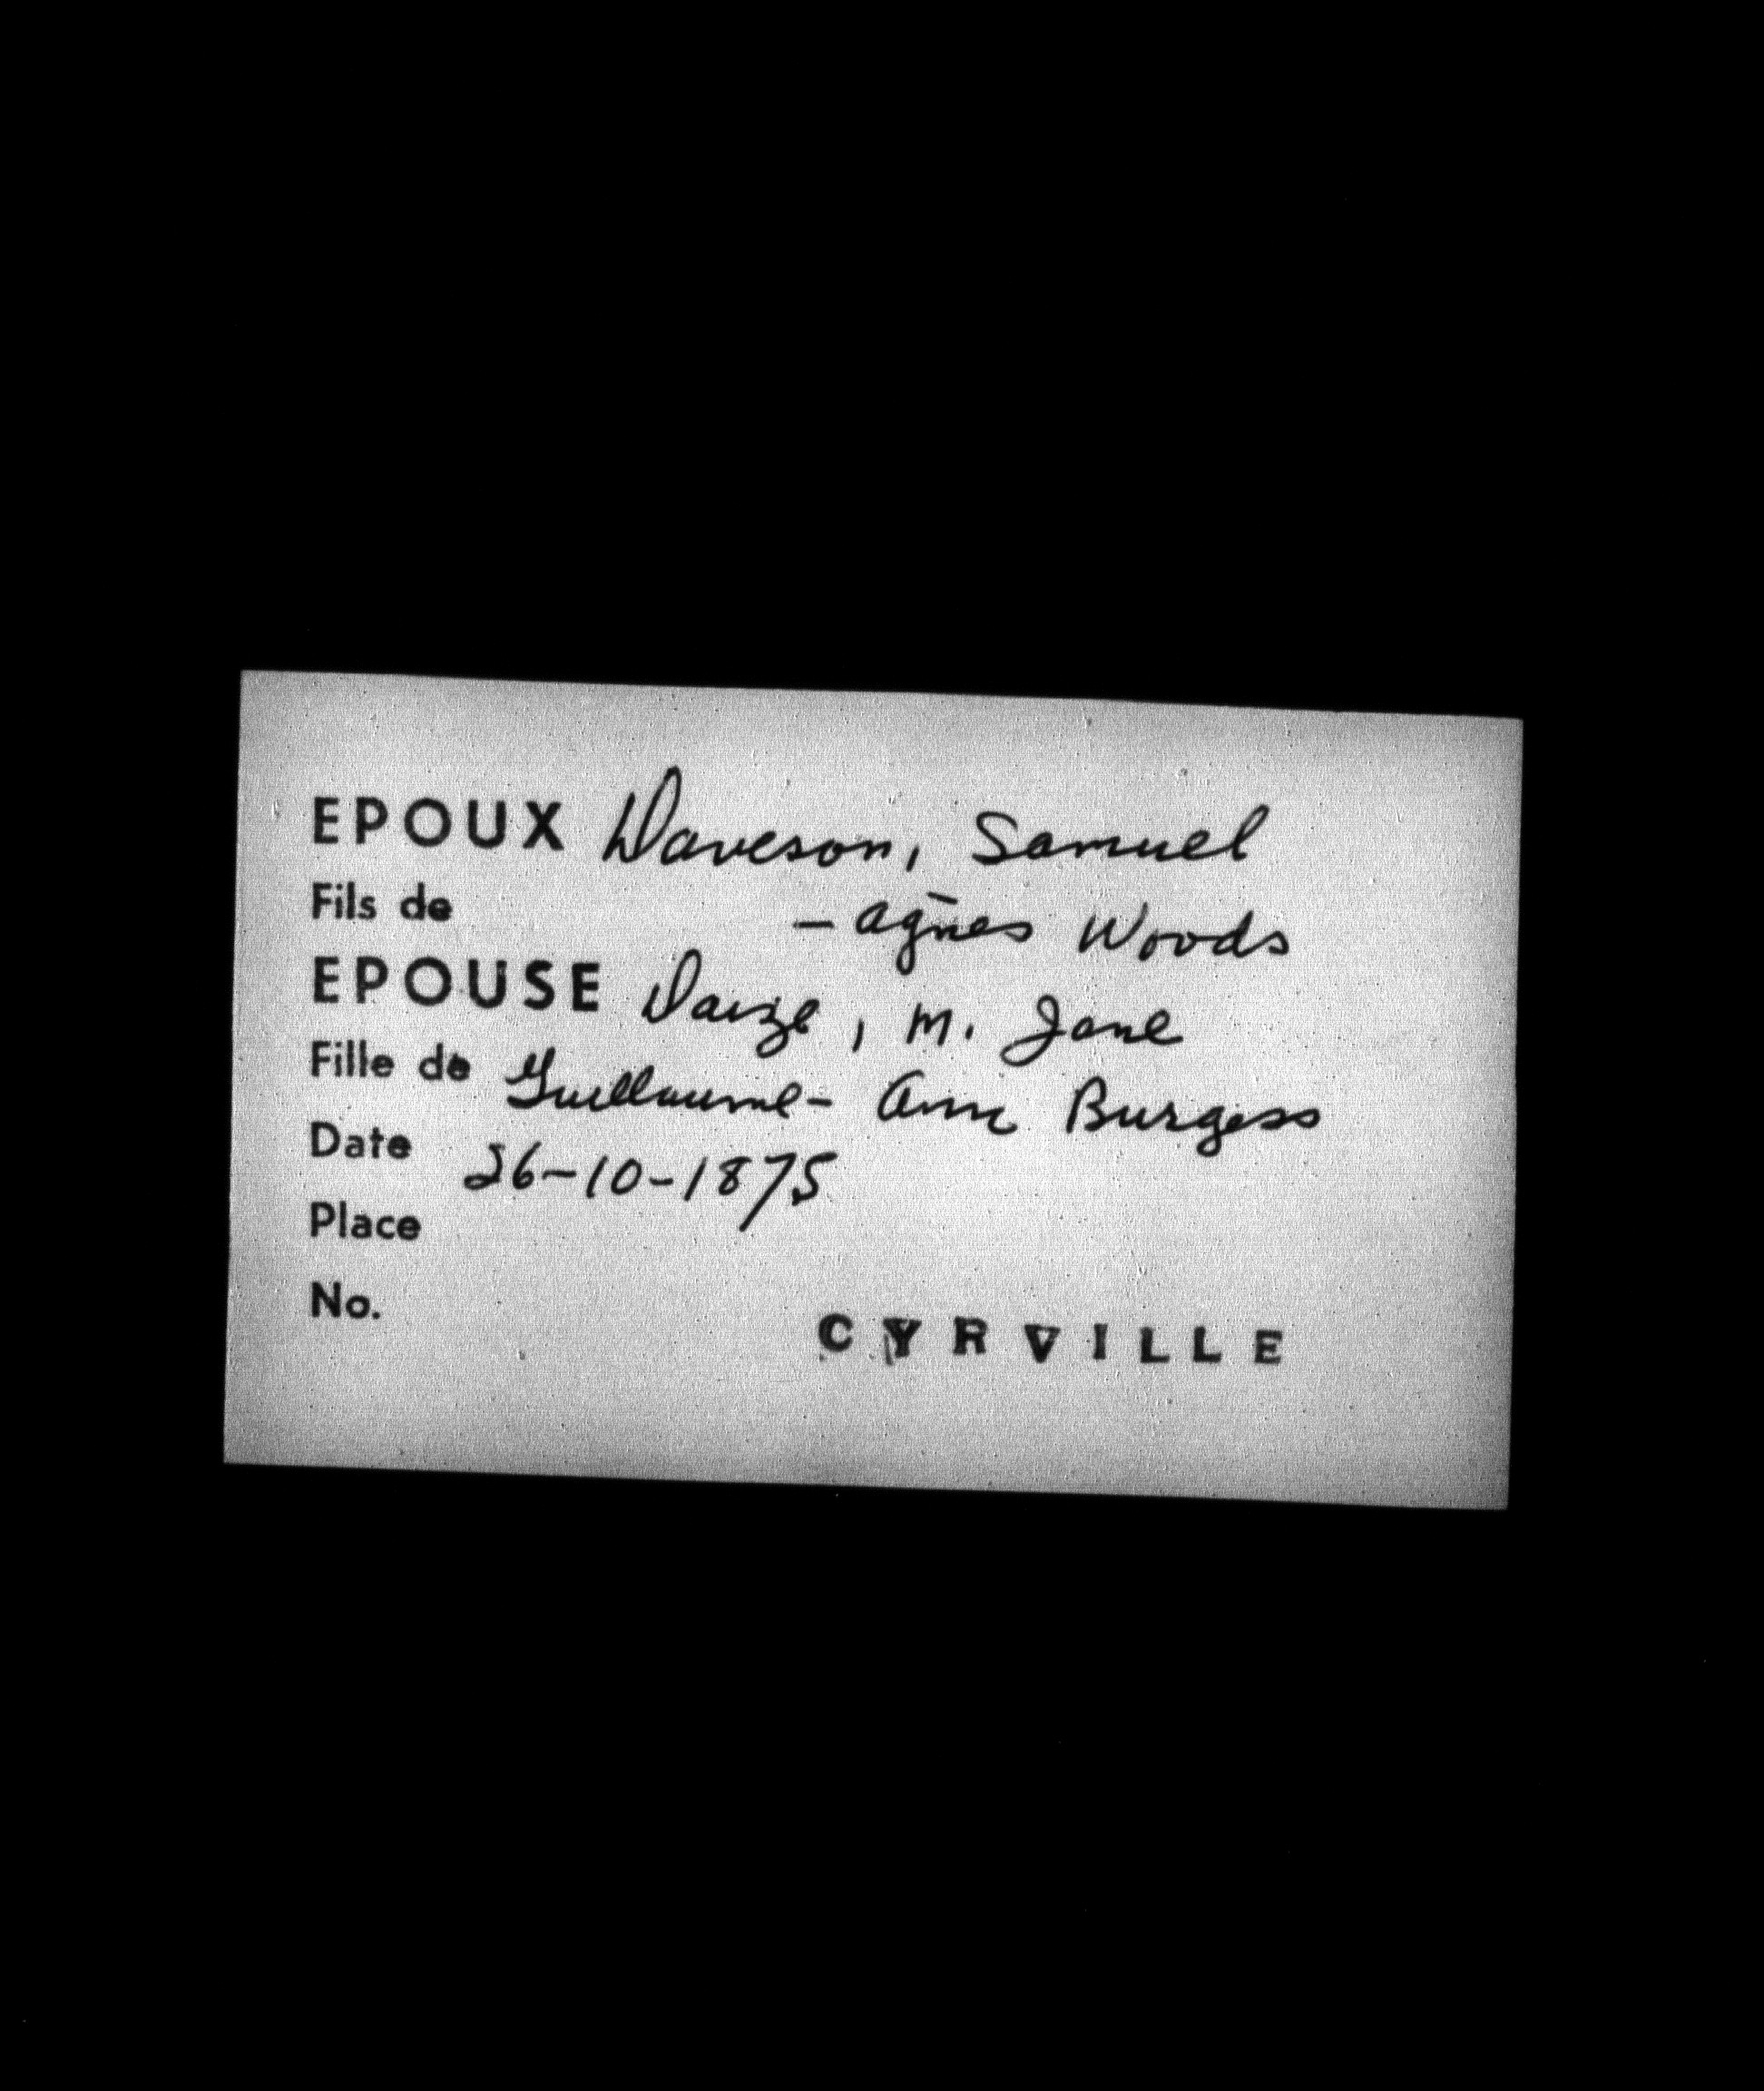 EPOUX Daveson, Samuel
Fils de - Agnes Woods
EPOUSE Daize, M. Jane
Fille de Guillaume - Ann Burgess
Date 26-10-1875
Place
No.
CYRVILLE